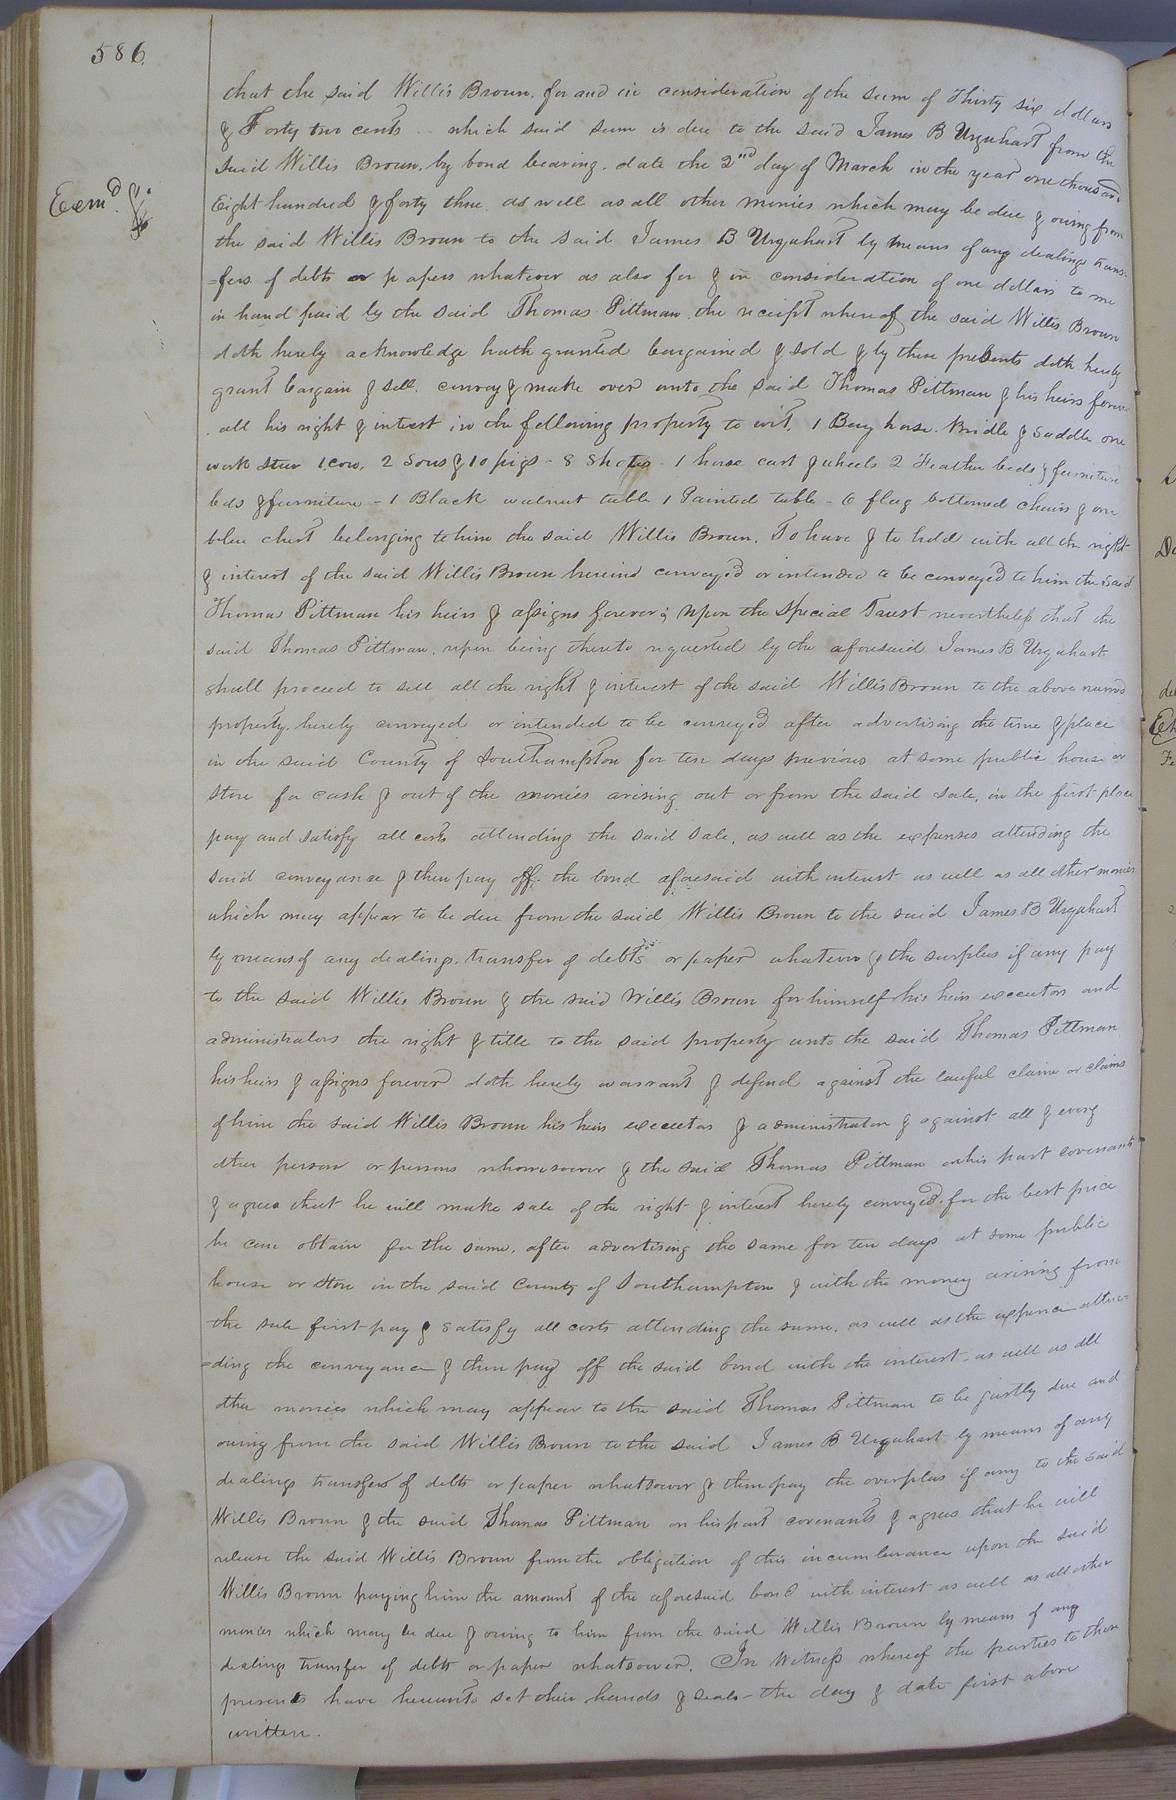 586.
that the said Willis Brown, for and in consideration of the sum of Thirty six dollars
& Forty two cents which said sum is due to the said James B Urquhart from the
said Willis Brown, by bond bearing date the 2nd day of March in the year one thousand
Exmd.
Eight hundred & forty three as well as all other monies which may be due & owing from
the said Willis Brown to the said James B Urquhart by means of any dealings trans-
=fers of debts or papers whatever as also for & in consideration of one dollars to me
in hand paid by the said Thomas Pittman the receipt whereof the said Willis Brown
doth hereby acknowledge hath granted bargained & sold & by these presents doth hereby
grant bargain & sell convey & make over unto the said Thomas Pittman & his heirs forever
all his right & interest in the following property to wit, 1 Bay horse Bridle & Saddle one
work steer 1 cow, 2 Sows & 10 pigs - 8 Shotes - 1 horse cart & wheels 2 Feather beds & furniture
beds & furniture - 1 Black walnut table 1 Painted table - 6 flag bottomed chairs & one
blue chest belonging to him the said Willis Brown. To have & to hold with all the right
& interest of the said Willis Brown hereind conveyed or intended to be conveyed to him the said
Thomas Pittman his heirs & assigns forever; Upon the Special Trust nevertheless that the
said Thomas Pittman, upon being thereto requested by the aforesaid James B Urquhart
shall proceed to sell all the right & interest of the said Willis Brown to the above named
property hereby conveyed or intended to be conveyed after advertising the time & place
in the said County of Southampton for ten days previous at some public house or
store for cash & out of the monies arising out or from the said sale, in the first place
pay and satisfy all costs attending the said sale, as well as the expenses attending the
said conveyance & then pay off the bond aforesaid with interest as well as all other monies
which may appear to be due from the said Willis Brown to the said James B Urquhart
by means of any dealings, transfer of debts or paper whatever & the surplus if any pay
to the said Willis Brown & the said Willis Brown for himself his heirs executors and
administrators the right & title to the said property unto the said Thomas Pittman
his heirs & assigns forever doth hereby warrant & defend against the lawful claim or claims
of him the said Willis Brown his heirs executors & administrators & against all & every
other person or persons whomsoever & the said Thomas Pittman on his part covenants
& agrees that he will make sale of the right & interest hereby conveyed for the best price
he can obtain for the same, after advertising the same for ten days at some public
house or store in the said County of Southampton & with the money arising from
the sale first pay & satisfy all costs attending the same, as well as the expence atten-
=ding the conveyance & then pay off the said bond with the interest as well as all
other monies which may appear to the said Thomas Pittman to be justly due and
owing from the said Willis Brown to the said James B Urquhart by means of any
dealings transfers of debts or paper whatsoever & then pay the overplus if any to the said
Willis Brown & the said Thomas Pittman on his part covenants & agrees that he will
release the said Willis Brown from the obligation of this incumberance upon the said
Willis Brown paying him the amount of the aforesaid bond with interest as well as all other
monies which may be due & owing to him from the said Willis Brown by means of any
dealings transfer of debts or paper whatsoever. In Witness whereof the parties to these
presents have hereunto set their hands & seals the day & date first above
written.